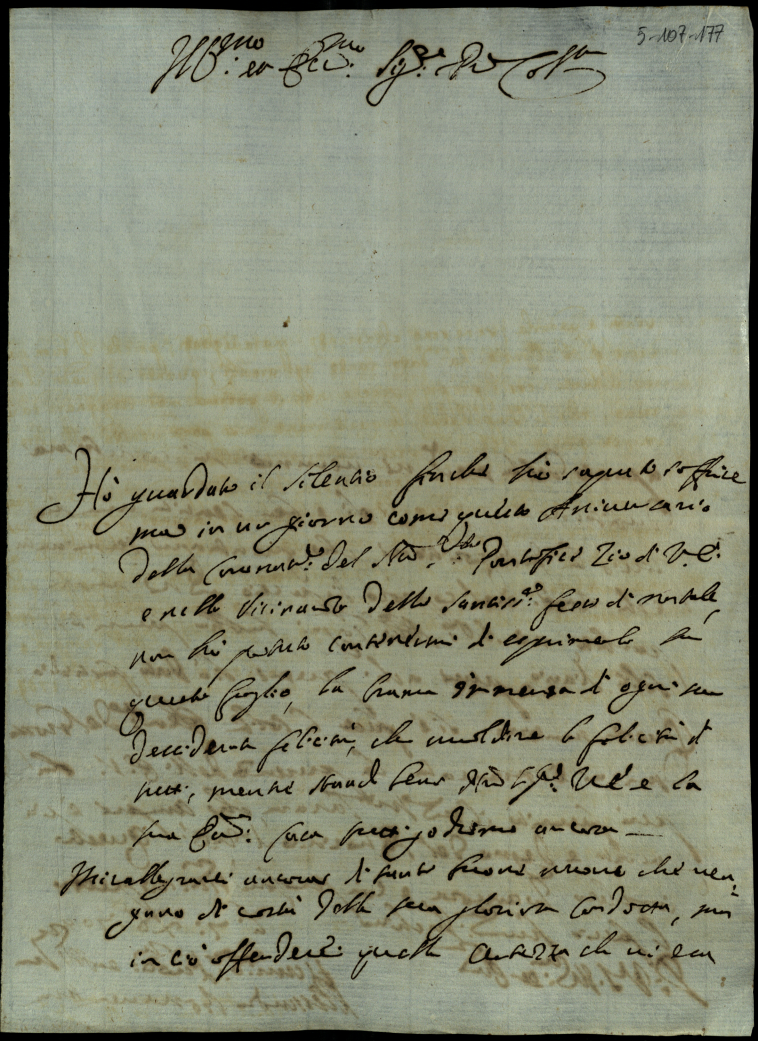 5-107-177
Ill:mo et Ecc:mo Sig:re P͞ne Col:mo
Hò guardato il silentio finche hò saputo soffrire
ma in un giorno come questo Aniversario
della Coronat:e del Pontefice Zio di V.E.
e nella vicinanza della santiss:a festa di Natale,
non hò potuto contenermi di esprimerle in
questo foglio, la brama immensa di ogni sua
desiderata felicità, che vuol dire la felicità di
tutti, mentre stando bene V.E. e la
sua Ecc:ma Casa tutti godremo ancora
Mi rallegrarei ancora di tante buone nuove che ven,
gono di costà della sua gloriosa Condotta, mà
in ciò offenderei quella certezza che vi era